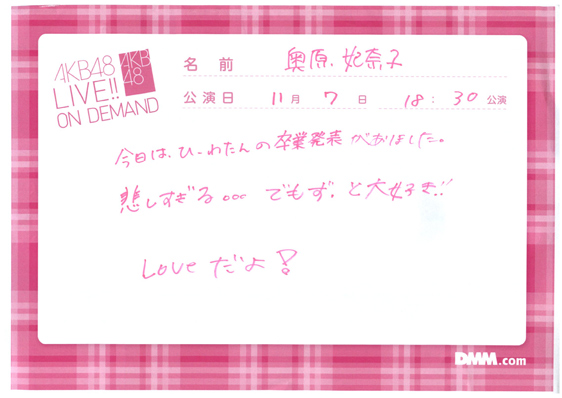 AKB48
LIVE!!
ON DEMAND
AKB
48
名前 奥原.妃奈子
公演日 11月 7日 18:30公演
今日は、ひーわたんの卒業発表がありました。
悲しすぎる。。。でもずっと大好き!!
Loveだよ!
DMM.com